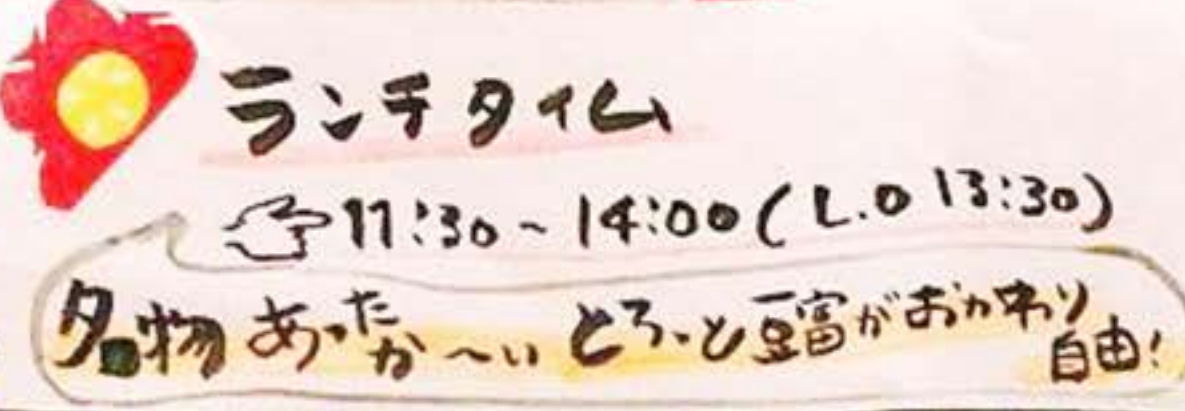 ランチタイム
11:30~14:00(L.O 13:30)
名物 あったか〜い とろ〜と豆富がおかわり自由!